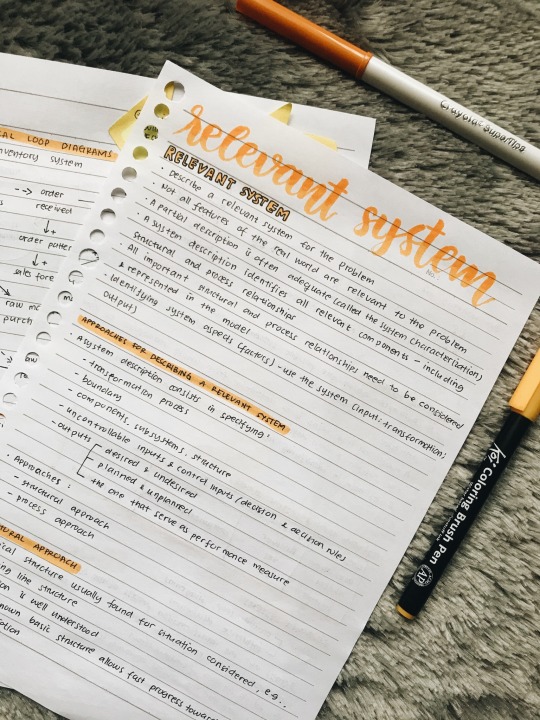 relevant system
No.
RELEVANT SYSTEM
· Describe a relevant system for the problem
· Not all features of the real world are relevant to the problem
· A partial description is often adequate (called the system characterisation)
· A system description identifies all relevant components - including
structural and process relationships
· All important structural and process relationships need to be considered
& represented in the model
· Identifying system aspects (factors) - use the system (input, transformation,
output)
APPROACHES FOR DESCRIBING A RELEVANT SYSTEM
· A system description consists in specifying:
- transformation process
- boundary
- components, subsystems, structure
- uncontrollable inputs & control inputs (decision & decision rules)
- outputs
desired & undesired
planned & unplanned
the one that serve as performance measure
· Approaches:
- structural approach
- process approach
URAL APPROACH
ical structure usually found for situation considered, e.g.,
ing line structure
ion is well understood
nown basic structure allows fast progress toward
AL LOOP DIAGRAMS
inventory system
--> order
received
↓+
order
↓+
sales fore
raw
purch
Crayola SuperTips
Koi Coloring Brush Pen
AP